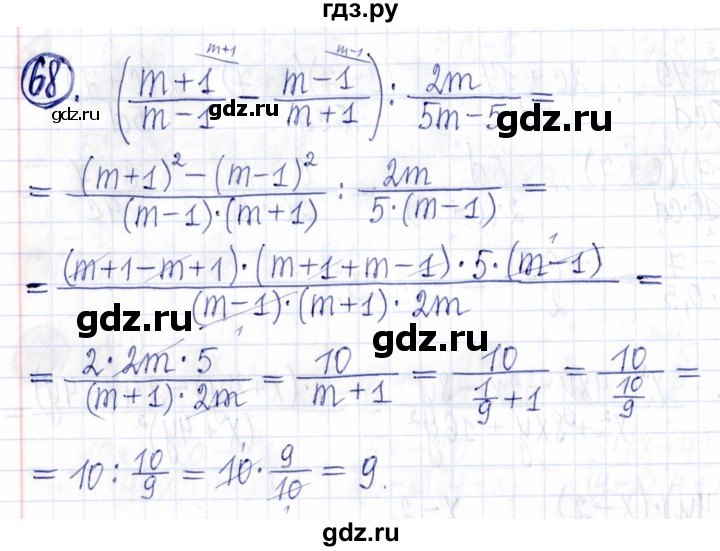 гдз.ру
68. ((m+1)/(m-1) ^{m+1} - (m-1)/(m+1) ^{m-1}) : 2m/(5m-5) =
gdz.ru gdz.ru gdz.ru
= ((m+1)² - (m-1)²)/((m-1)·(m+1)) : 2m/(5·(m-1)) =
= ((m+1-m+1)·(m+1+m-1)·5·(m-1)^1)/((m-1)_1·(m+1)·2m) =
gdz.ru gdz.ru
= (2·2m·5)/((m+1)·2m) = 10/(m+1) = 10/(1/9+1) = 10/(10/9) =
= 10 : 10/9 = 10^1 · 9/10_1 = 9.
gdz.ru gdz.ru
gdz.ru